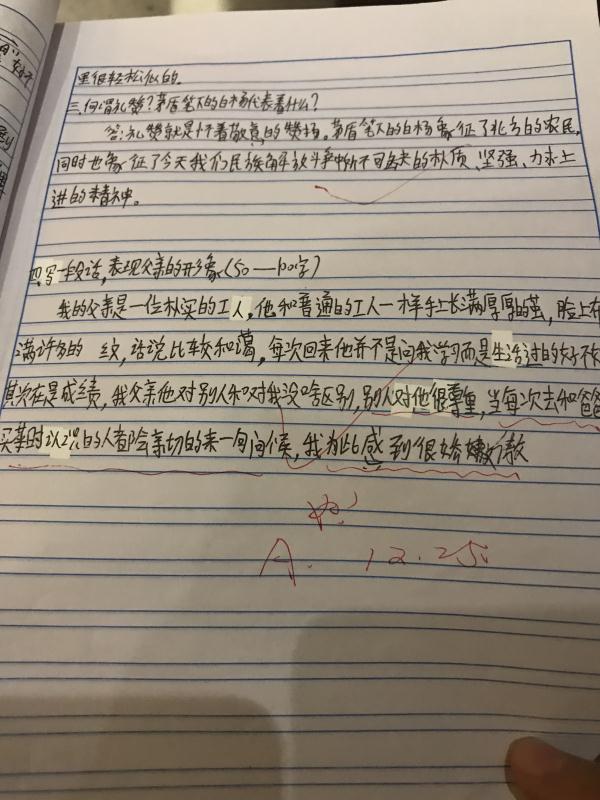 里很轻松似的.
三.何谓礼赞?茅盾笔下的白杨代表着什么?
答:礼赞就是怀着敬意的赞扬。茅盾笔下的白杨象征了北方的农民,
同时也象征了今天我们民族解放斗争中所不可缺的朴质、坚强、力求上
进的精神。
四.写一段话,表现父亲的形象(50—100字)
我的父亲是一位朴实的工人,他和普通的工人一样手上长满厚厚的茧,脸上布
满许多的 纹,话说比较和蔼,每次回来他并不是问我学习而是生活过的好不好
其次在是成绩,我父亲他对别人和对我没啥区别,别人对他很尊重,当每次去和爸爸
买菜时认识的人都会亲切的来一句问候,我为此感到很骄傲
A. 12.25